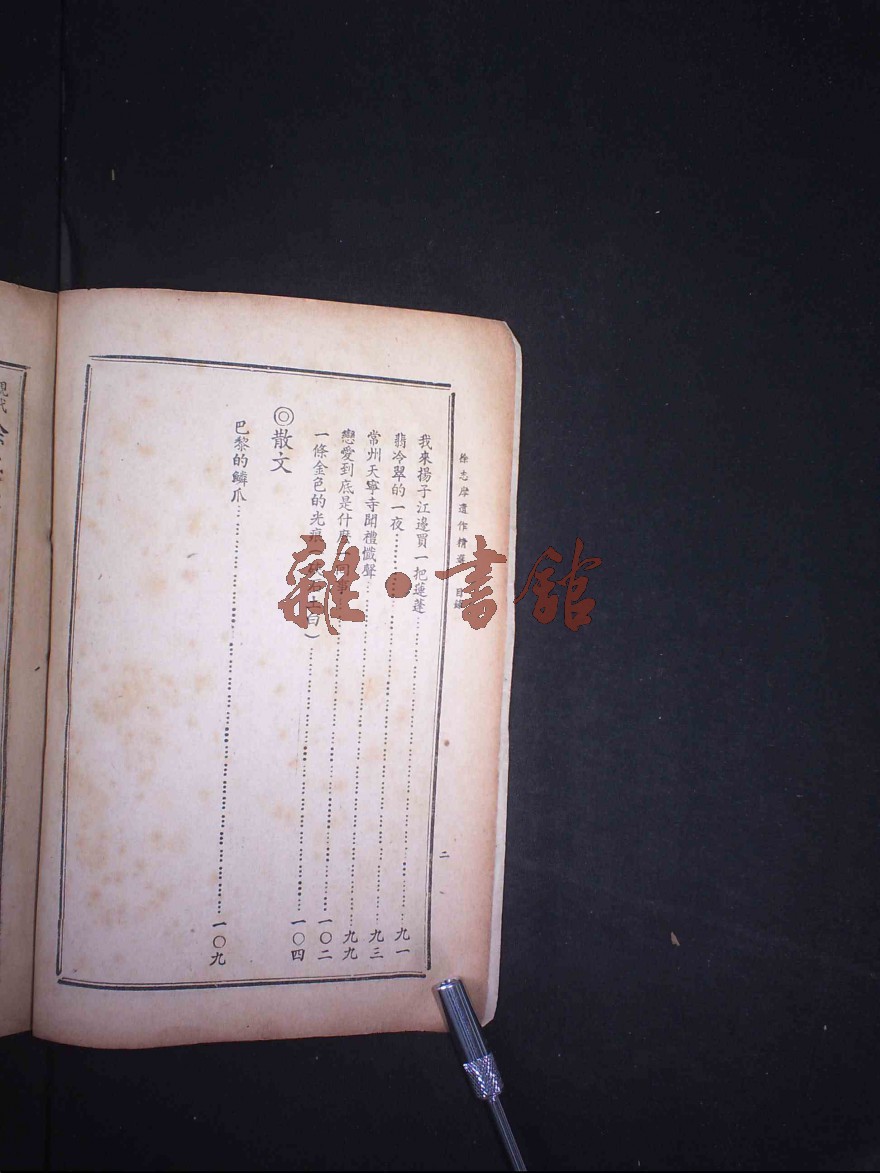 徐志摩遺作精選 目錄
二
我來揚子江邊買一把蓮蓬……九一
翡冷翠的一夜……九三
常州天寧寺聞禮懺聲……九九
戀愛到底是什麼一回事……一〇二
一條金色的光痕(硤石土白)……一〇四
◎散文
巴黎的鱗爪……一〇九
現代
雜·書館